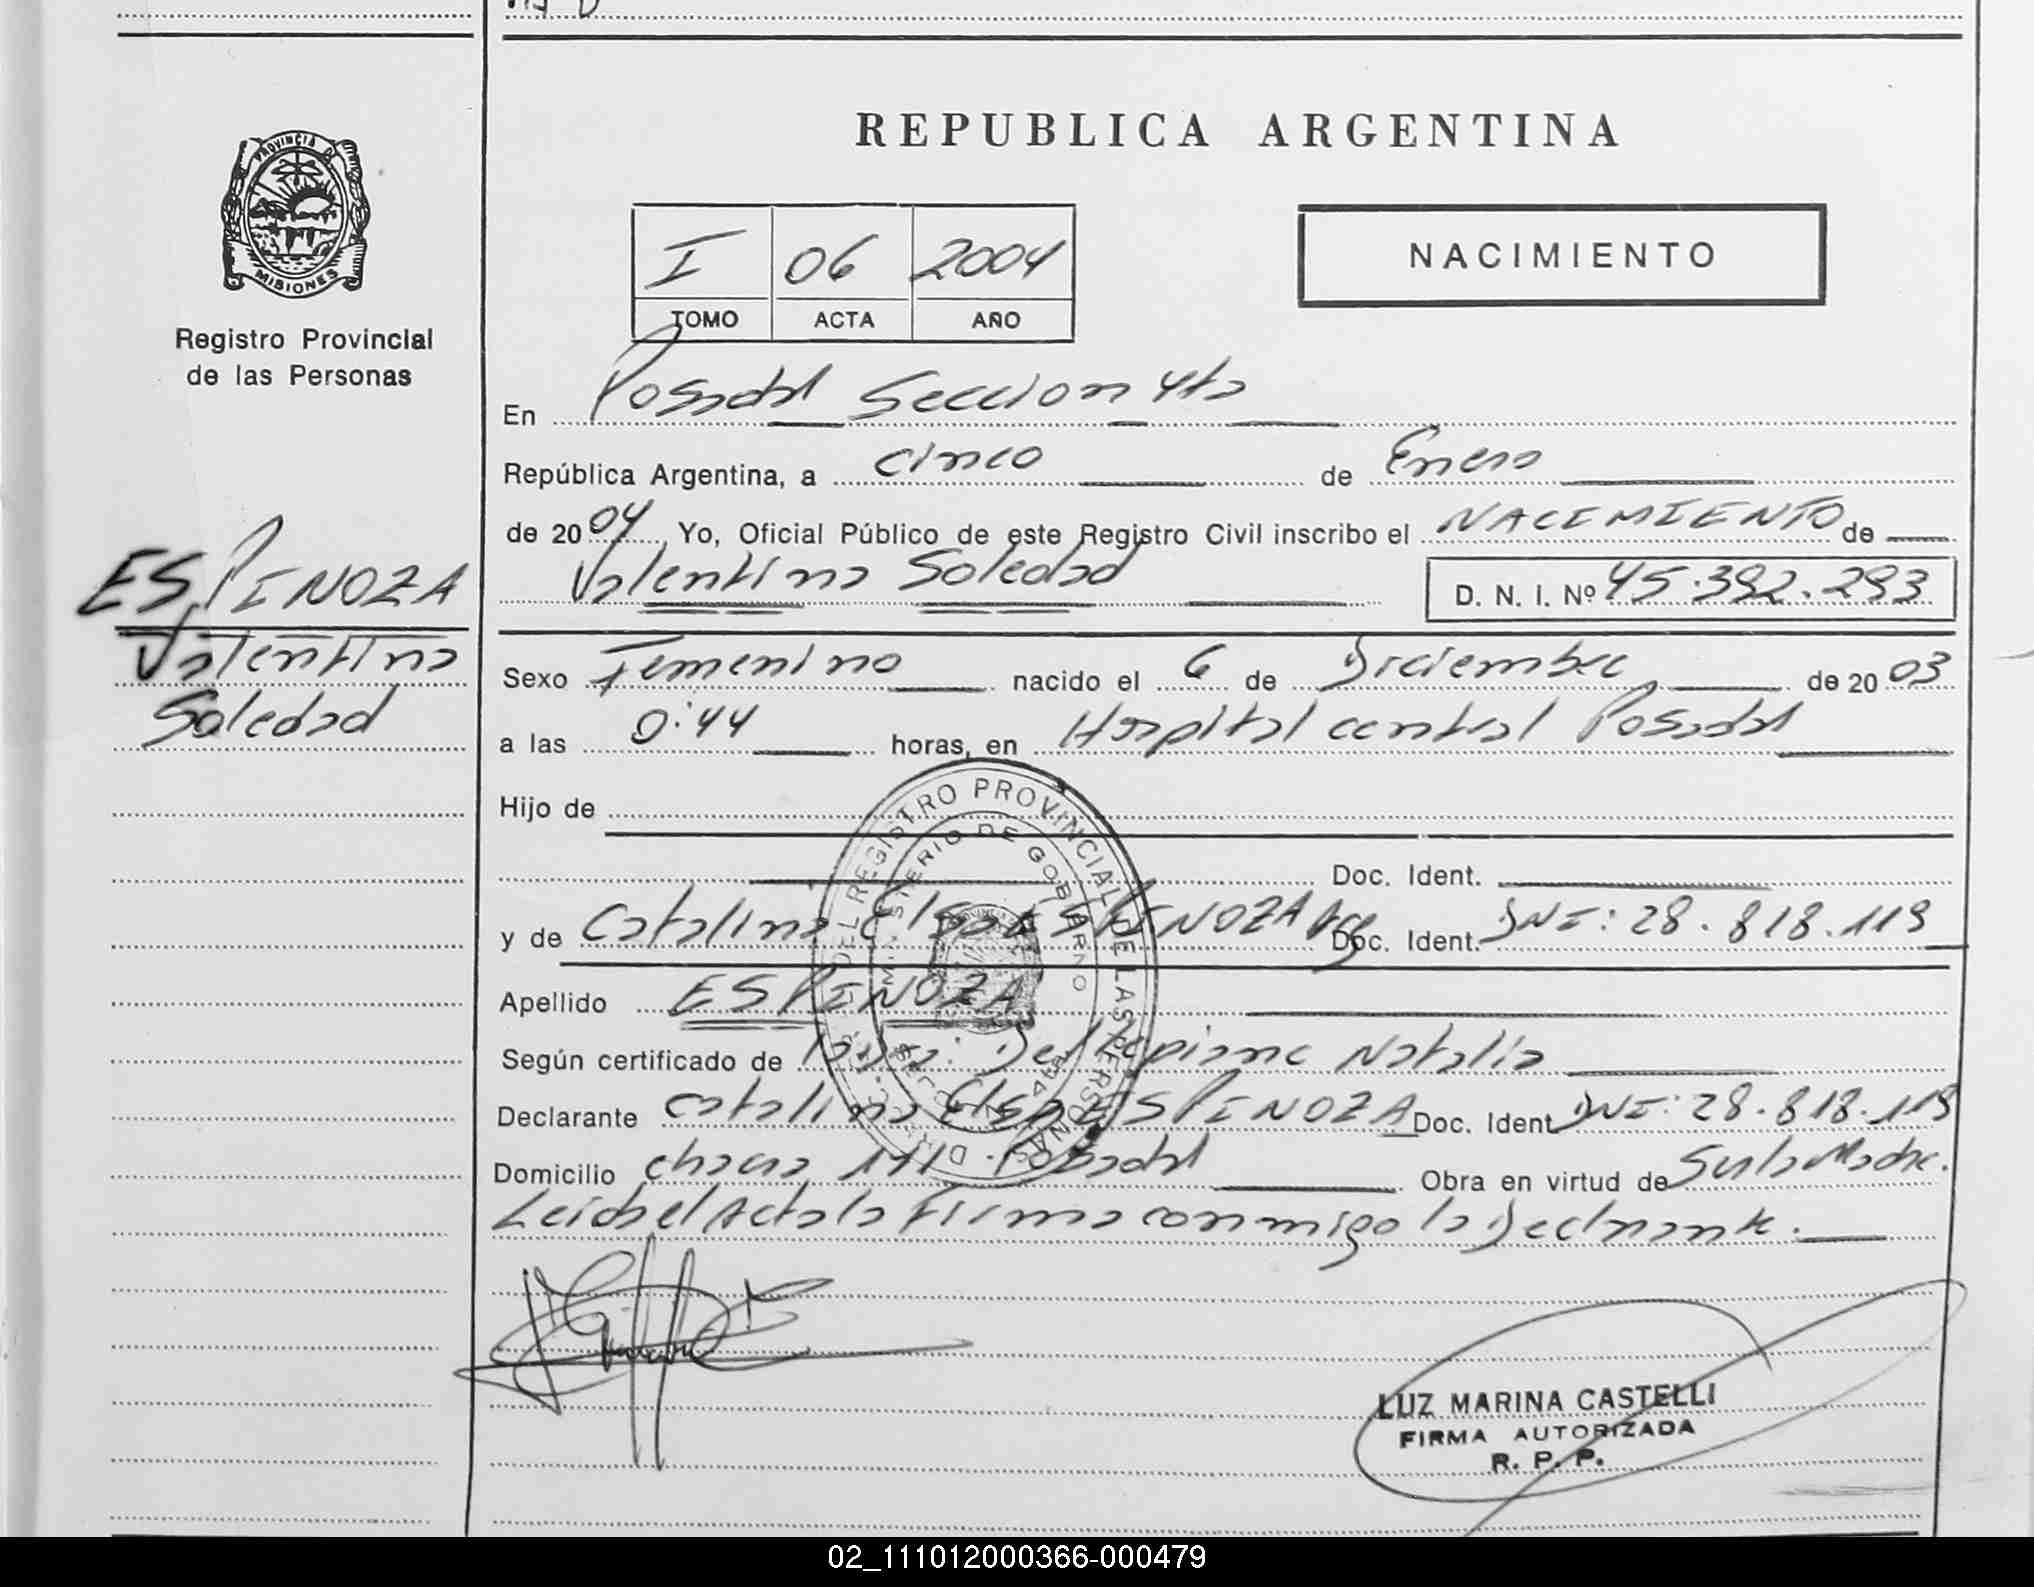 REPUBLICA ARGENTINA
PROVINCIA DE
MISIONES
Registro Provincial
de las Personas
I 06 2004
TOMO ACTA AÑO
NACIMIENTO
En Posadas Seccion 4ta
República Argentina, a cinco de Enero
de 2004, Yo, Oficial Público de este Registro Civil inscribo el NACIMIENTO de
Valentina Soledad D. N. I. Nº 45.392.293
ESPINOZA
Valentina
Soledad
Sexo Femenino nacido el 6 de Diciembre de 2003
a las 0:44 horas, en Hospital central Posadas
Hijo de
Doc. Ident.
y de Catalina Elsa ESPINOZA Doc. Ident. DNI: 28.818.119
Apellido ESPINOZA
Según certificado de Dellepiane Natalia
Declarante Catalina Elsa ESPINOZA Doc. Ident DNI: 28.818.119
Domicilio chacra 111. Posadas Obra en virtud de Ser la Madre.
Leida el Acta la Firma conmigo la Declarante.
DIRECCION DEL REGISTRO PROVINCIAL DE LAS PERSONAS
MINISTERIO DE GOBIERNO
LUZ MARINA CASTELLI
FIRMA AUTORIZADA
R. P. P.
02_111012000366-000479